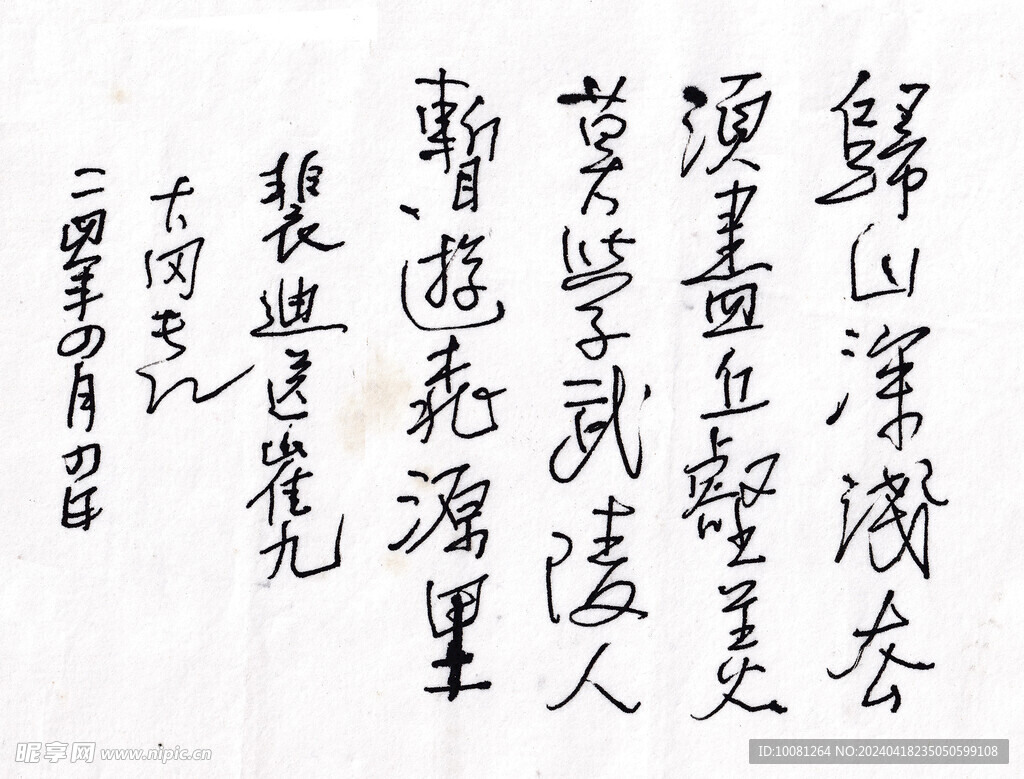 歸山深淺去
須盡丘壑美
莫學武陵人
暫遊桃源里
裴迪送崔九
二四年四月四日
昵享网 www.nipic.cn
ID:10081264 NO:20240418235050599108